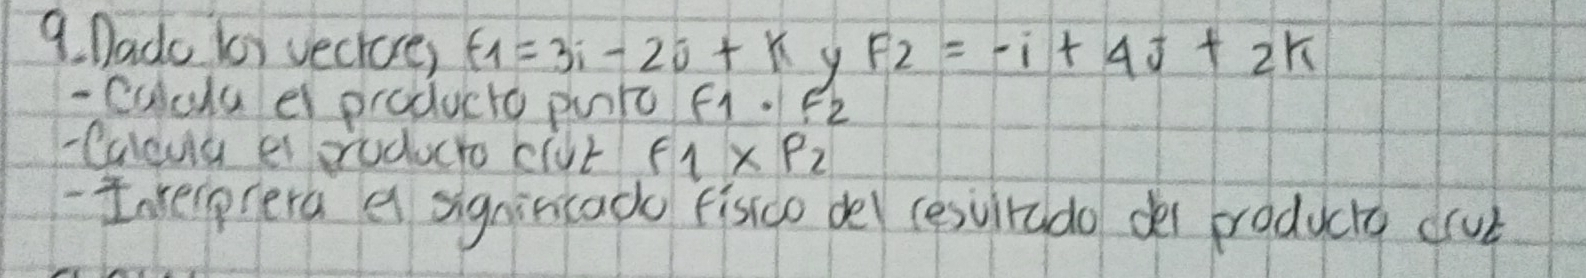 9. Dado los vectores F1 = 3i - 2j + k y F2 = -i + 4j + 2k
- Calcula el producto punto F1 · F2
- Calcula el producto cruz F1 x F2
- Interpreta el significado físico del resultado del producto cruz